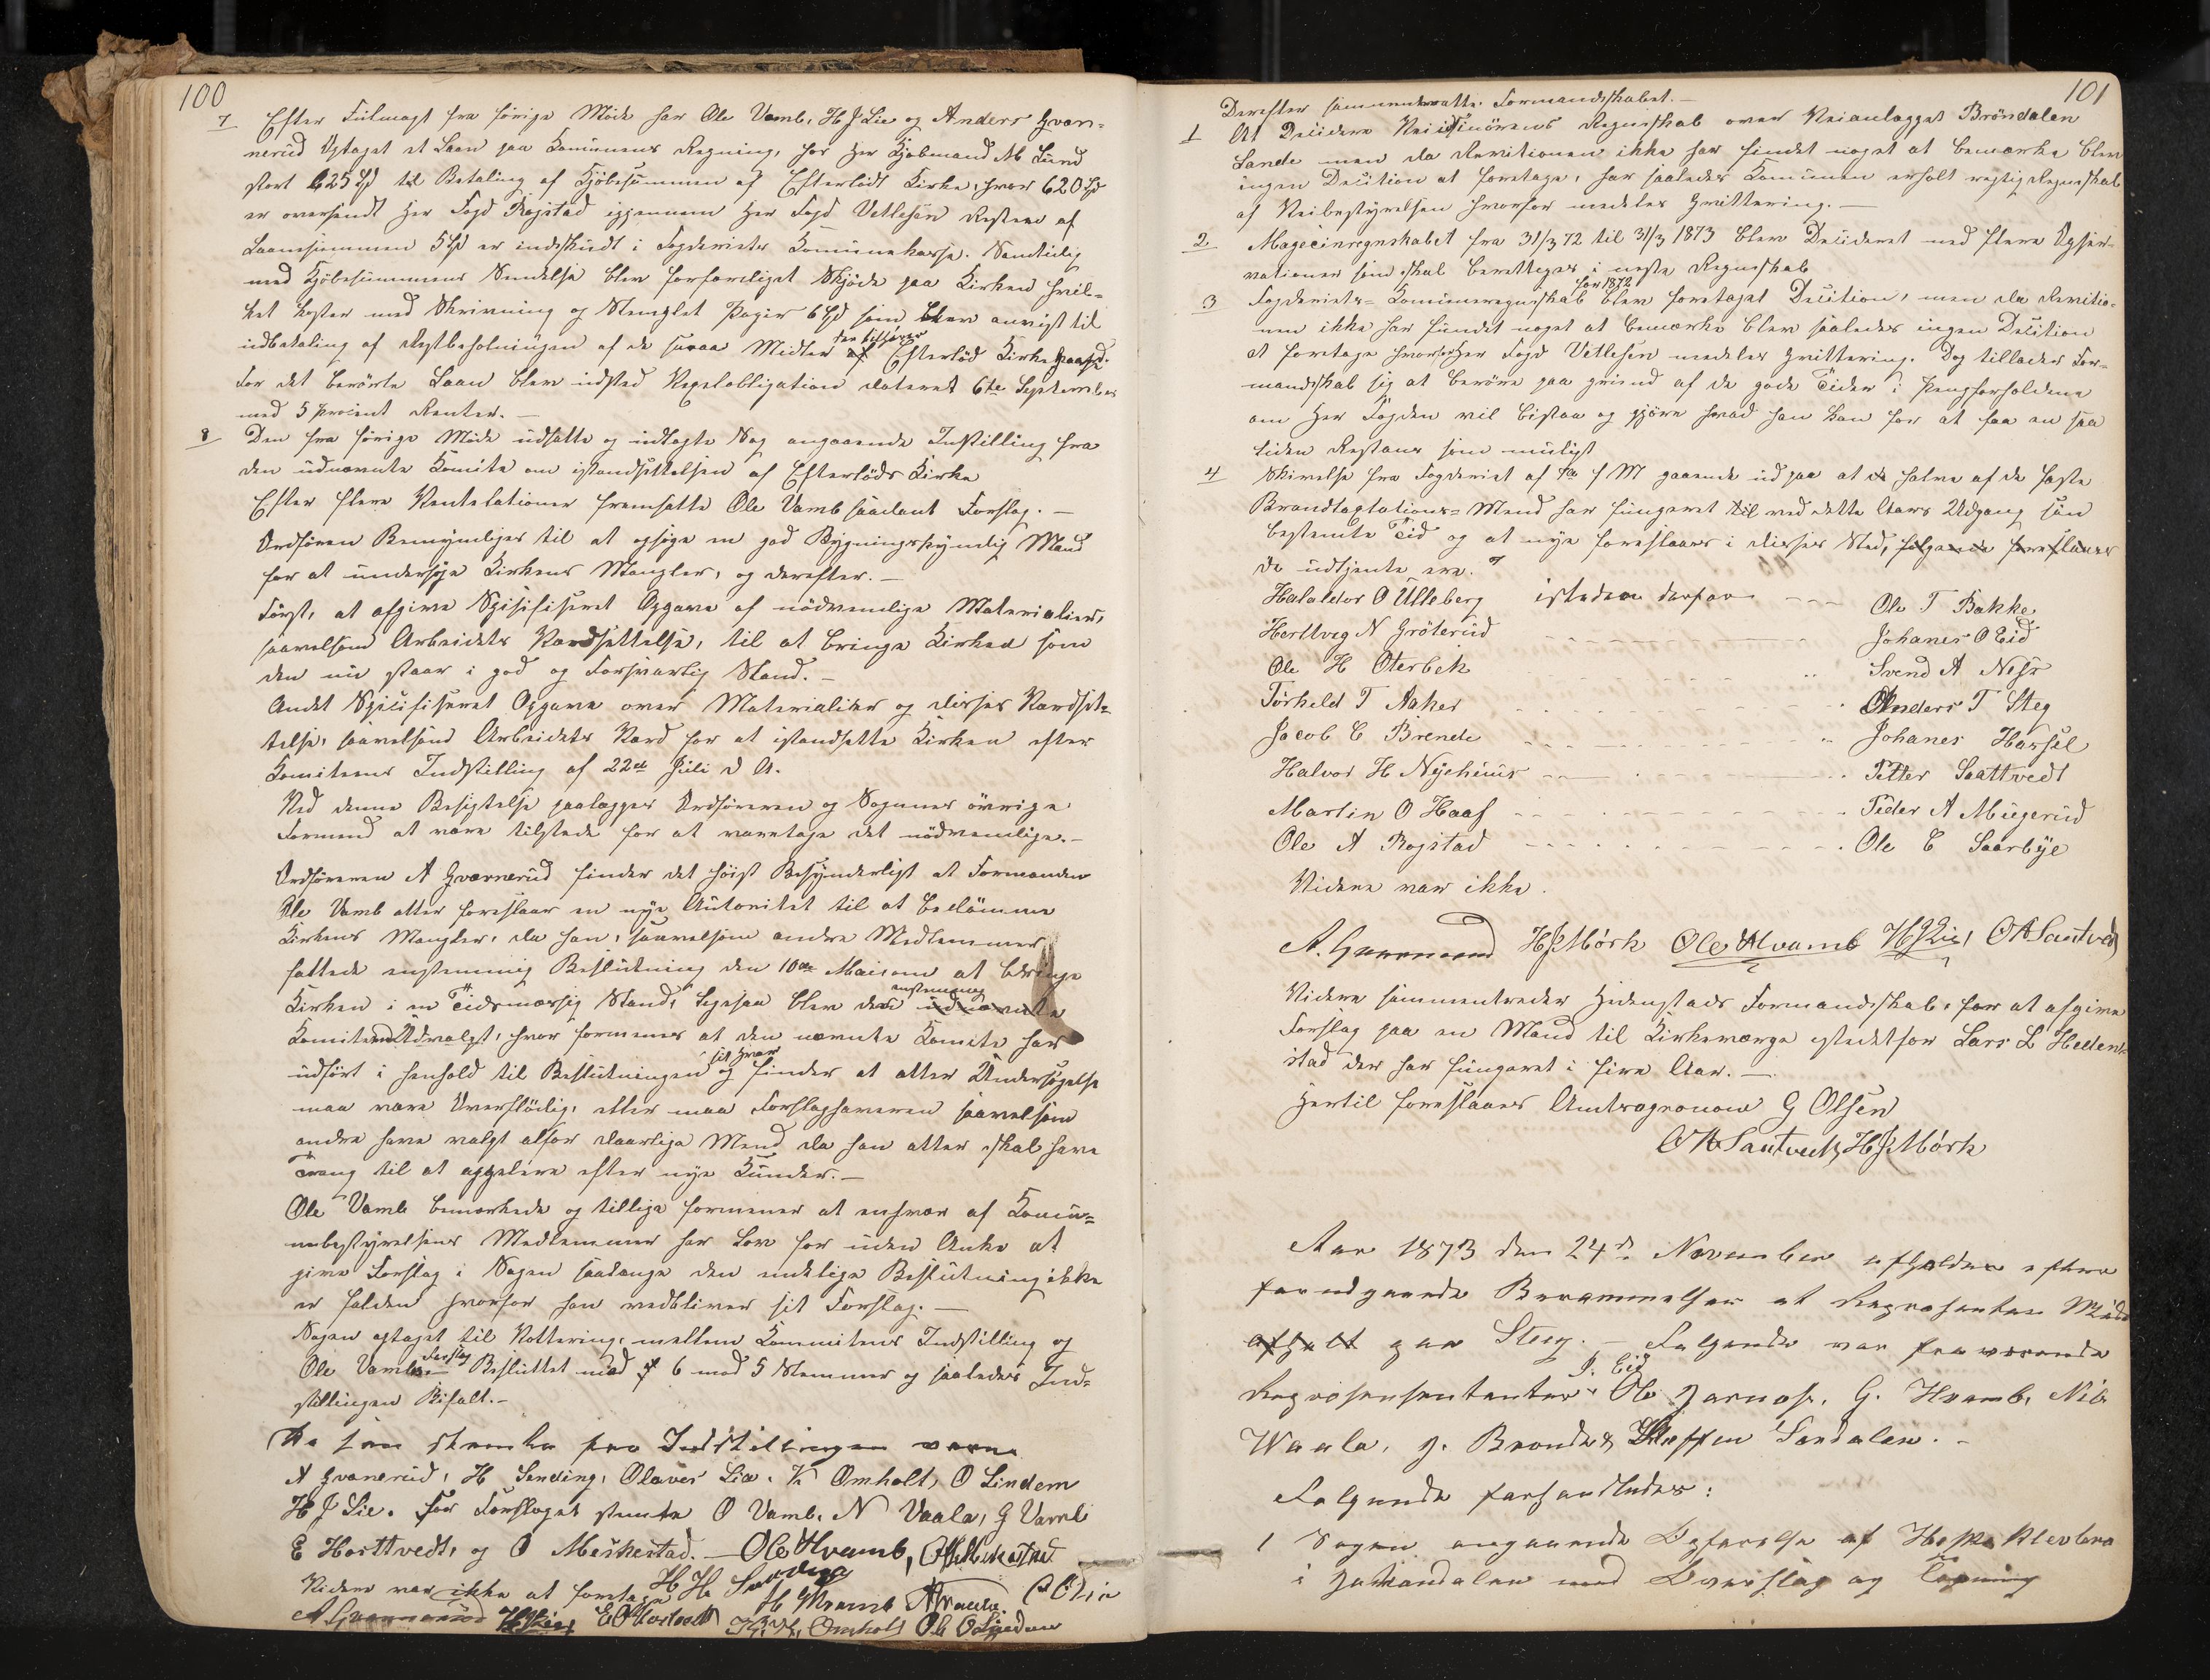 100
7 Efter Fulmagt fra forige Møde har Ole Vamb, H J Lie og Anders Gvær=
nerud Optaget et Laan paa Komunens Regning, hos Her Kjøbmand Lund
stort 625 Spd til Betaling af Kjøbesummen af Efterlødt Kirke, hvor 620 Spd
er oversendt Her Fogd Rogstad igjennem Her Fogd Vetlesen Resten af
Laanesummen 5 Spd er indskudt i Fogderiets Komunekasse. Samtidig
med Kjøbesummens Sendelse blev forfærdiget Skjøde paa Kirken hvil=
ket koster med Skrivning og Stemplet Papir 6 Spd som blev anvist til
udbetaling af Restbeholdningen af de Midler der tilhører Efterløds Kirke
For det berørte Laan blev udsted Regelobligation dateret 6te September
med 5 procent Renter.—
8 Den fra forige Møde udsatte og udlagte Sag angaaende Instilling fra
den udnævnte Komite om istandsettelsen af Efterløds Kirke
Efter flere Ventelationer fremsatte Ole Vamb saadant Forslag.—
Ordføren Bemyndiges til at opsøge en god Bygningskyndig Mand
for at undersøge Kirkens Mangler, og derefter.—
Først, at afgive Spisifiseret Opgave af nødvendige Materialier,
saavelsom Arbeidets Værdsettelse, til at bringe Kirken som
den nu staar i god og Forsvarlig Stand.—
Andet Spisifiseret Opgave over Materialier og disses Værdset=
telse, saavelsom Arbeidets Værd for at istandsette Kirken efter
Komiteens Indstilling af 22de Juli d A.
Ved denne Besigtelse paalægges Ordføreren og Sognets øvrige
Formend at være tilstede for at varetage det nødvendige.—
Ordføreren A Gværnerud finder det høist Besynderligt at Formanden
Ole Vamb atter foreslaar en nye Autoritet til at bedømme
Kirkens Mangler, da han, saavelsom andre Medlemmer
fattede enstemmig Beslutning den 10de Mai om at bringe
Kirken i en Tidsmæssig Stand, ligesaa blev den enstemmig udnævnte
Komite Udvalgt, hvor formenes at den nævnte Komite har
udført i henhold til Beslutningen sit Hverv og finder at atter Undersøgelse
maa være Overflødig, eller maa Forslagsaveren saavelsom
andre have valgt altfor daarlige Mend da han atter skal have
Trang til at appelere efter nye Kunder.—
Ole Vamb bemærkede og tillige formener at enhver af Komu=
nebestyrelsens Medlemmer har Lov for uden Anke at
give Forslag i Sagen saalenge den endelige Beslutning ikke
er falden hvorfor han vedbliver sit Forslag.—
Sagen optaget til Vottering, mellem Kommiteens Indstilling og
Ole Vambs Forslag Besluttet med 6 mod 5 Stemmer og saaledes Ind=
stillingen Bifalt.—
De som stemte for Indstillingen vare
A Gvanerud, H Senving, Olaves Lia, K Omholt, O Lindem
H J Lie. For Forslaget stemte O Vamb, N Vaala, G Vamb
E Horttvedt, og O Meskestad.— Ole Hvamb,
Videre var ikke at foretage
A Gvannerud H J Lie Omholt Ole O Lindem
101
Derefter sammentraatte Formandskabet.—
1 At Desidere Regnskab over Veianlægget Brøndalen
Sande men da Revitionen ikke har fundet noget at bemærke blev
ingen Desition at foretage, har saaledes Komunen erholt rigtig Regnskab
af Veibestyrelsen hvorfor meddeles Qvittering.—
2 Magesinregnskabet fra 31/3 72 til 31/3 1873 blev Desideret med flere Opser=
vationer som skal berettiges i neste Regnskab
3 Fogderiets= Komuneregnskab for 1872 blev foretaget Desition, men da Revitio=
nen ikke har fundet noget at bemærke blev saaledes ingen Desition
at foretage hvorfor Her Fogd Vetlesen meddeles Qvittering. Dog tillader For=
mandskab sig at berøre paa grund af de gode Tider i Pengeforholdene
om Her Fogden vil bistaa og gjøre hvad han kan for at faa en saa
liden Restans som muligt
4 Skrivelse fra Fogderiet af f M gaaende ud paa at de halve af de faste
Brandtagtations= Mend har fungeret til ved dette Aars Udgang sin
bestemte Tid og at nye foreslaaes i disses Sted, følgende foreslaaes
de udtjente ere.
Halvdor O Ulleberg istedenderfor --- Ole T Bakke
Herttveg N Grøterud --- Johanes O Eid
Ole H Oterbek --- Svend A Ness
Torkeld T Aaker --- Anders T Steg
Jacob C Brende --- Johanes Hassel
Halvor H Nyehuus --- Petter Saattvedt
Martin O Haaf --- Peder A Muggerud
Ole A Rogstad --- Ole C Saarbye
Videre var ikke.
A. Gvannerud H J Mörk Ole Hvamb H J Lie, O A Santved
Videre sammentreder Hedenstads Formandskab, for at afgive
Forslag paa en Mand til Kirkeværge istedetfor Lars L Heden=
stad der har fungeret i fire Aar.—
Hertil foreslaaes Amtsagronom G Olsen
O A Santvedt, H J Mörk
Aar 1873 den 24de November afholdes efter
forudgaaende Berammelse et Represantan Møde
afholt paa Steeg.— Følgende var fraværende
Represensentanter, J. Eid Ole Jarnæs, G. Hvamb, Nils
Waala, J. Brende & Steffen Sandalen.—
Følgende forhandledes:
1 Sagen angaaende Opførelse af Hoppe Klevbro
i Jondalen med Overslag og Tegning